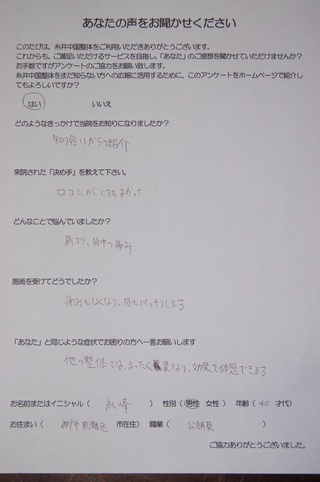 あなたの声をお聞かせください
このたびは、糸井中国整体をご利用いただきありがとうございます。
これからも、ご満足いただけるサービスを目指し、「あなた」のご感想を聞かせていただけませんか?
お手数ですがアンケートのご協力をお願い致します。
糸井中国整体をまだ知らない方への広報に活用するために、このアンケートをホームページで紹介し
てもよろしいですか?
はい いいえ
どのようなきっかけで当院をお知りになりましたか?
知り合いからの紹介
来院された「決め手」を教えて下さい。
口コミがとてもよかった
どんなことで悩んでいましたか?
肩コリ、背中の痛み
施術を受けてどうでしたか?
痛みもなくなり、目もパッチリします
「あなた」と同じような症状でお困りの方へ一言お願いします
他の整体とは、まったく異なり、効果を体感できます
お名前またはイニシャル( ) 性別(男性 女性) 年齢(40 才代)
お住まい(神戸 市在住) 職業(公務員 )
ご協力ありがとうございました。